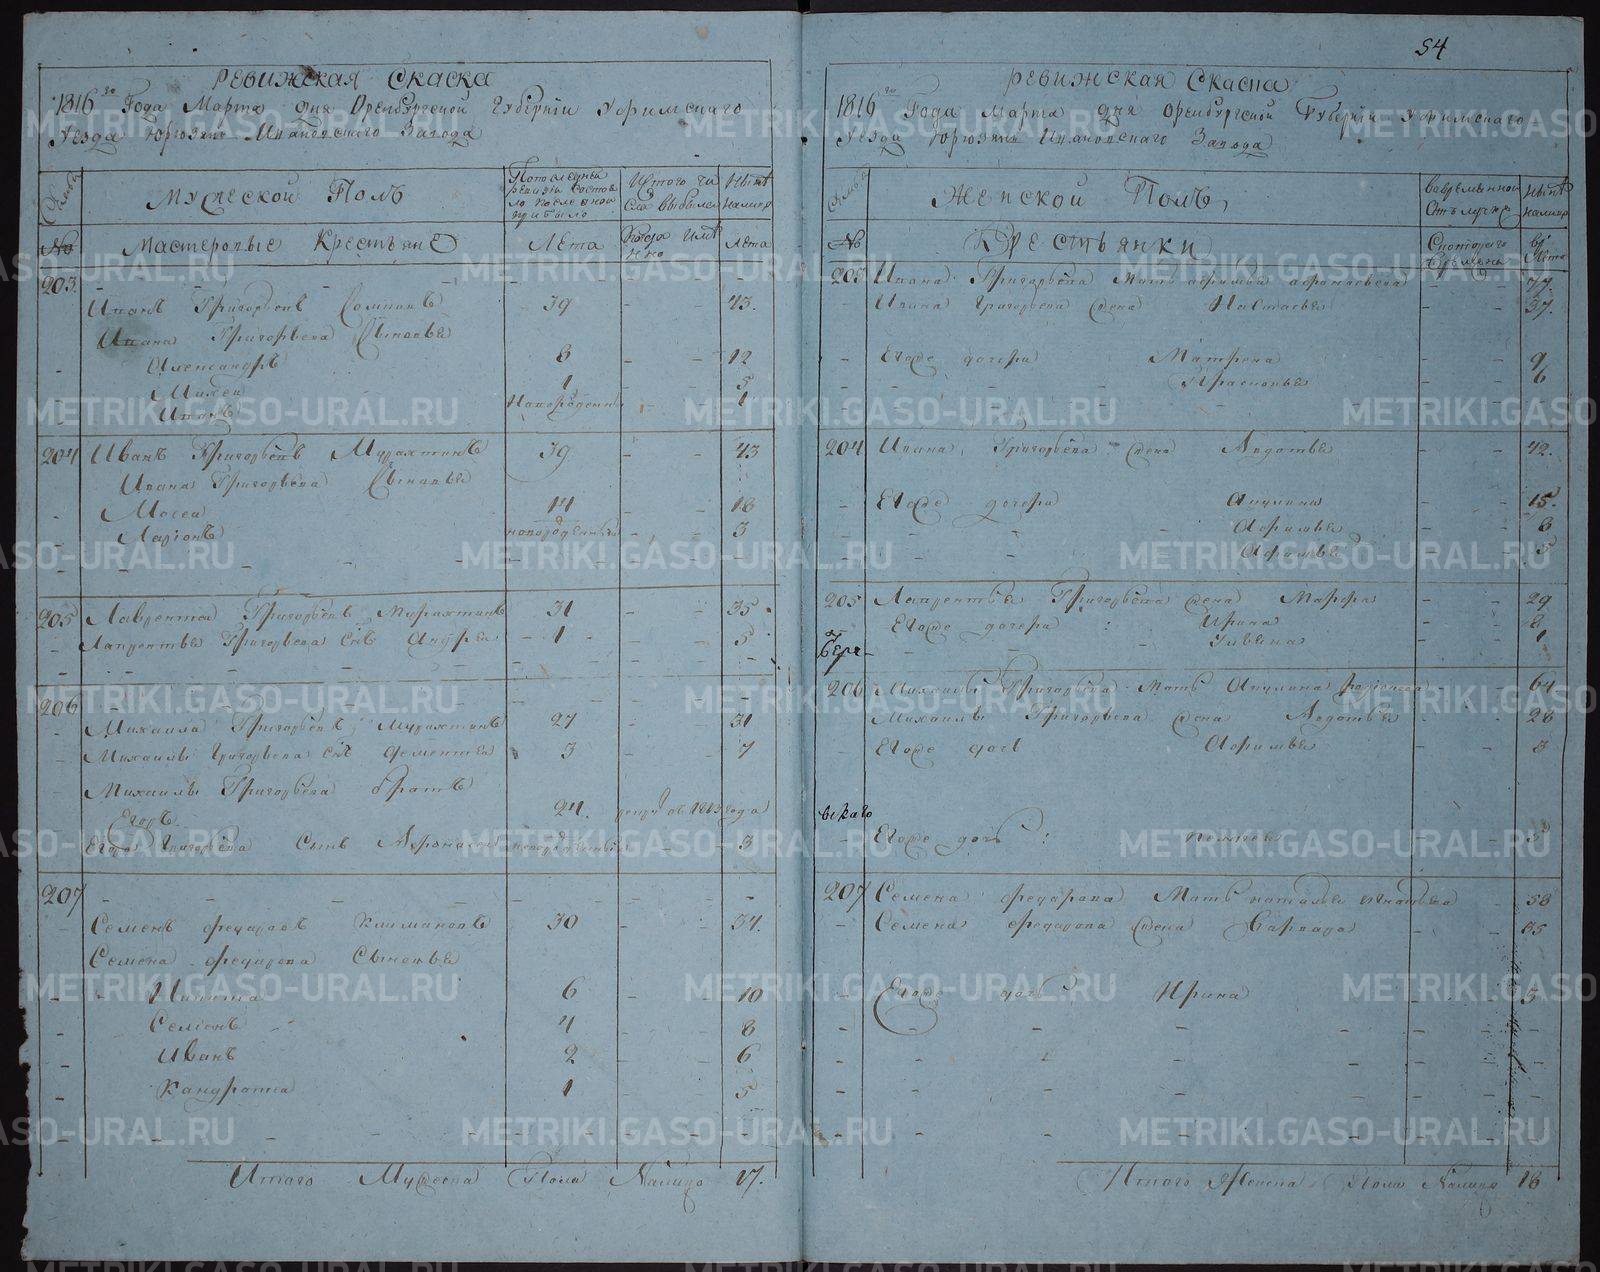 54
РЕВИЖСКАЯ СКАСКА
1816го Года Марта дня Оренбургской Губернiи Уфимскаго
Уезда Юрюзянь Ивановскаго Завода
Мужеской Полъ
Итого чи
сла выбыло
Ныне
налицо
№
Мастеровые Крестьяне
Лета
Когда имянно
Лета
203.
Иванъ Григорьевъ 39 43.
Ивана Григорьева Сыновья
Александръ 8 12
Михей 1 5
Иванъ Новорожденный 1
204 Иванъ Григорьевъ Мурахтинъ 39 43
Ивана Григорьева Сыновья
Мосей 14 18
Ларiонъ новорожденный 3
205 Лаврентей Григорьевъ Мурахтинъ 31 35
Лаврентья Григорьева Снъ Андрей 1 5
206
Михаила Григорьевъ Мурахтинъ 27 31
Михаилы Григорьева снъ Дементей 3 7
Михаилы Григорьева братъ
Егоръ 24. рекрут 1813 года
Егора Григорьева Сынъ Афонасей новорожденный 3
207
Семенъ Федаровъ Климановъ 30 34.
Семена Федарова Сыновья
Никита 6 10
Семiонъ 4 8
Иванъ 2 6
Кандратей 1 5
Итого Мужеска Пола Налицо 17.
РЕВИЖСКАЯ СКАСКА
1816го Года Марта дня Оренбургской Губернiи Уфимскаго
Уезда Юрюзянь Ивановскаго Завода
Женской Полъ
Во временной
отлучке
Ныне
налицо
№
Крестьянки
Скотораго
времени
Лета
203 Ивана Григорьева Мать Афимья Афонасьева 77.
Ивана Григорьева жена Настасья 37.
Егоже дочери Матрена 9
Прасковья 6
204 Ивана Григорьева жена Авдотья 42.
Егоже дочери Акулина 15.
Афимья 8
Афимья 5
205 Лаврентья Григорьева жена Марфа 29
Егоже дочери Ирина 8
Улияна 1
206 Михаилы Григорьева Мать Акулина 64
Михаилы Григорьева жена Авдотья 28
Егоже дочь Афимья 3
Егоже дочь 5
207 Семена Федарова Мать Наталья Игнатьева 58
Семена Федарова жена Варвара 35
Егоже дочь Ирина 5
Итого Женска Пола Налицо 18